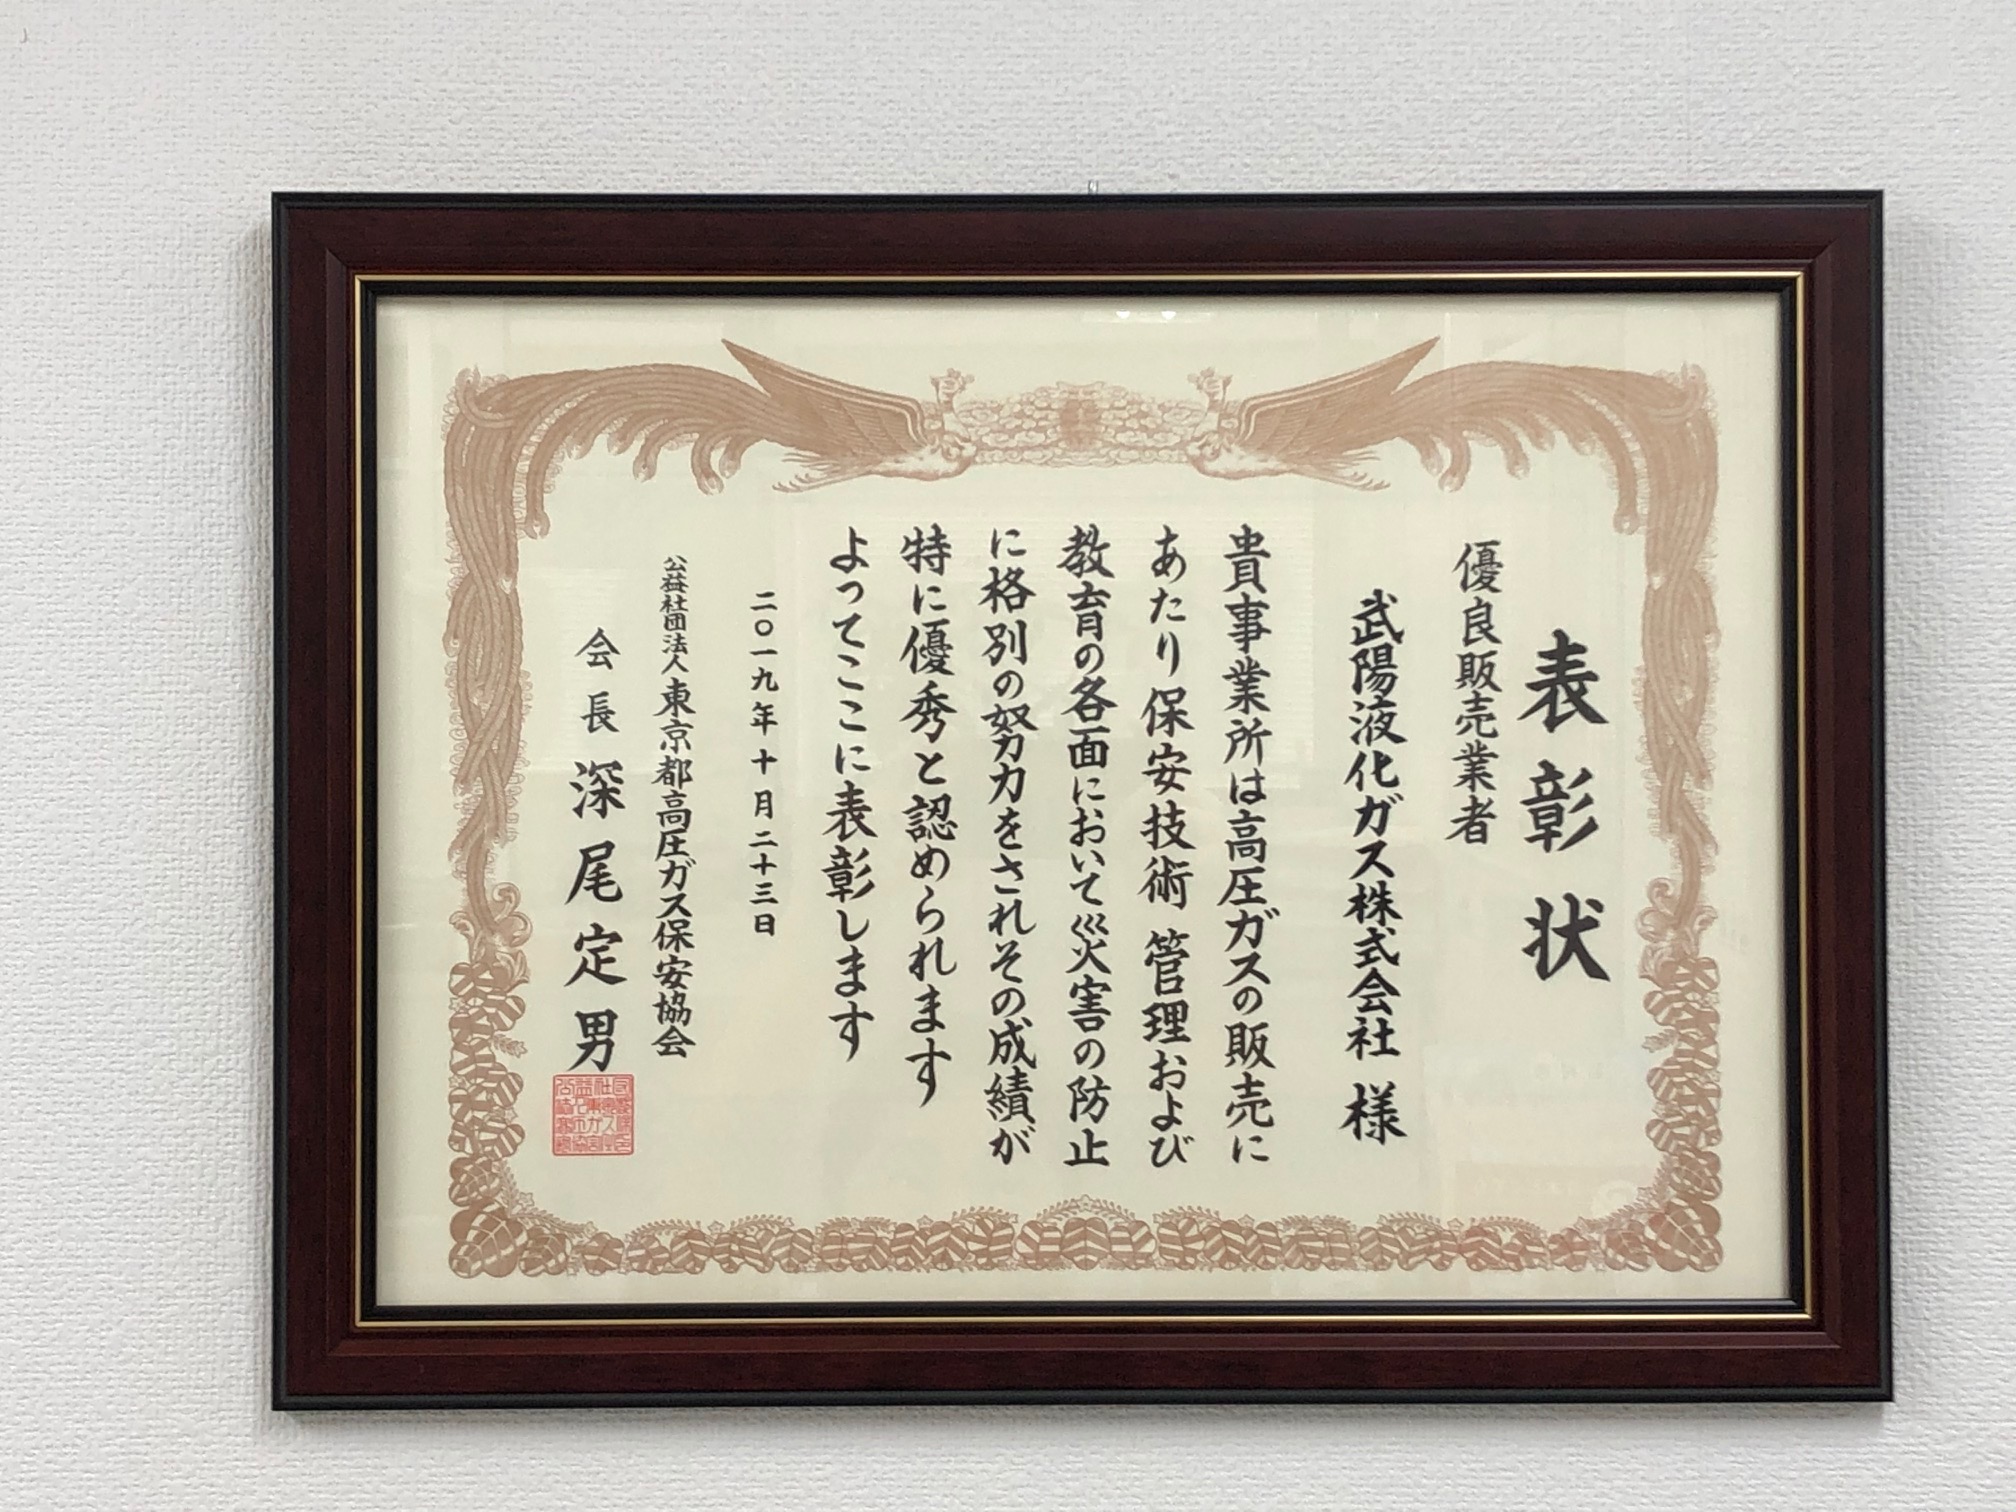 表彰状
優良販売業者
武陽液化ガス株式会社 様
貴事業所は高圧ガスの販売に
あたり保安技術 管理および
教育の各面において災害の防止
に格別の努力をされその成績が
特に優秀と認められます
よってここに表彰します
二〇一九年十月二十三日
公益社団法人東京都高圧ガス保安協会
会長 深尾定男